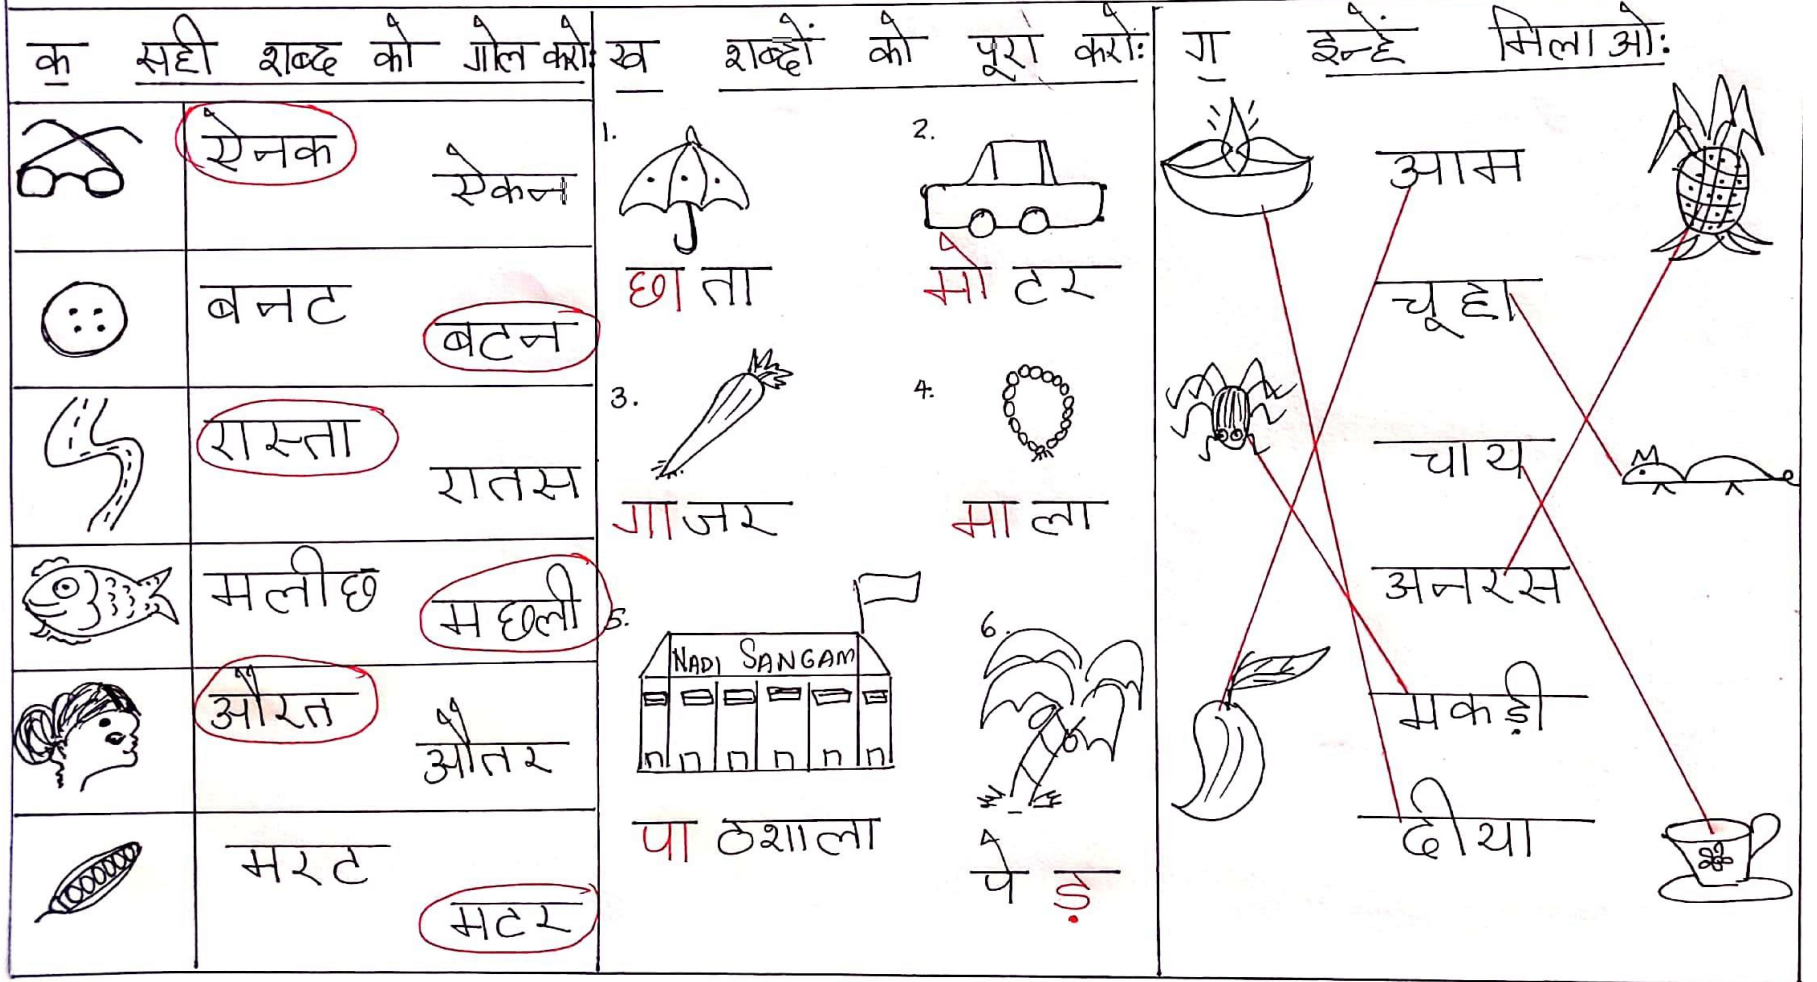 क सही शब्द को गोल करो:
ऐनक ऐकन
बनट बटन
रास्ता रातस
मलीछ मछली
औरत औतर
मरट मटर
ख शब्दों को पूरा करो:
1. छाता
2. मोटर
3. गाजर
4. माला
5. NADI SANGAM
पाठशाला
6. पेड़
ग इन्हें मिलाओ:
आम
चूहा
चाय
अनरस
मकड़ी
दीया